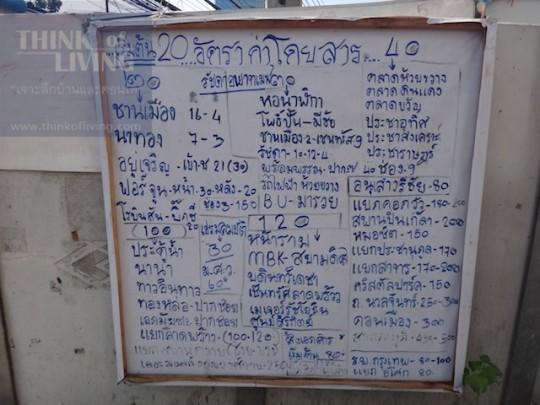 THINK of
LIVING
"เจาะลึกบ้านและคอนโด"
www.thinkofliving.com
เริ่มต้น 20 อัตราค่าโดยสาร... 40
20
ชานเมือง 14-4
นาทอง 7-3
อยู่เจริญ - เข้า-ช 21(30)
ฟอร์จูน-หน้า-30-หลัง-20
โรบินสัน-บิ๊กซี 20
100
ประตูน้ำ
นานา
ทาวอินทาว
ทองหล่อ-ปากซอย
เอกมัย-ปากซอย
แยกลาดพร้าว-(100-120)
30
ม.ศ.ว.
60
หอนาฬิกา
โพธิ์ปั้น-มีชัย
ชานเมือง 2-เซนทรัล 9
รัชดา-10-12-4
รถไฟฟ้า ห้วยขวาง
ช่อง 3-150
BU-มารวย
120
หน้าราม
MBK-สยามดิส
บดินทร์เดชา
เซ็นทรัลลาดพร้าว
เมเจอร์รัชโยธิน
ศูนย์สิริกิติ์
เริ่มต้น 80
ตลาดห้วยขวาง
ตลาดดินแดง
ตลาดขวัญ
ประชาอุทิศ
ประชาสงเคราะห์
ประชาราษฎร์
40 ช่อง-9
อนุสาวรีย์ชัย-80
แยกคอกวัว-180-200
สะพานปิ่นเกล้า-200
หมอชิต-150
แยกประชานุกูล-170
แยกสาทร-170-200
คริสตัลปาร์ค-150
ถ.นวลจันทร์-250-300
ดอนเมือง-300
ร.พ.กรุงเทพ-80-100
แยก อโศก 80